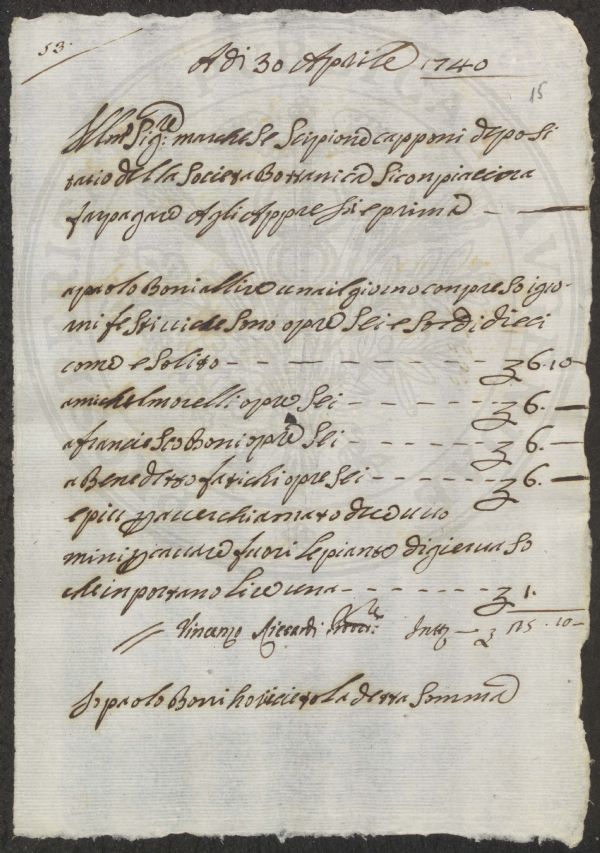 53.
A di 30 Aprile 1740
15
Illmo Sig:re marchese Scipione capponi deposi
tario della Societa Bottanica Si conpiacera
far pagare Agli Appresso e prima —
a paolo Boni a llire una il giorno conpreso i gio-
rni festivi che Sono opre Sei e Soldi dieci
come e solito 6.10
a michel morelli opre Sei 6.—
a franciesco Boni opre Sei 6.—
a Benedetto fatichi opre Sei 6.—
e piu p aver chiamato dua uo
mini p cavare fuori le piante di gieva so
che inportano lire una 1.
Vincenzo Riccardi Tutto 25.10—
Io paolo Boni ho riceuto la detta Somma